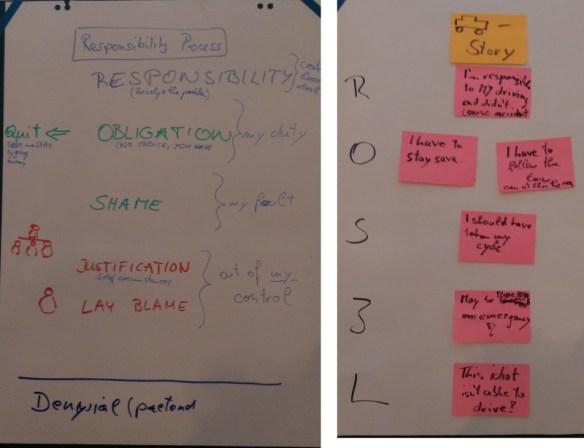 Responsibility Process
RESPONSIBILITY
Quit
OBLIGATION
my duty
(NO CHOICE, YOU HAVE
SHAME
my fault
JUSTIFICATION
out of my
control
LAY BLAME
Denysial (pretend
Story
R
I'm responsible
to MY driving
and didn't
cause accident
O
I have to
stay save.
I have to
follow the
S
I should have
taken my
cycle
J
May be
an emergency
?
L
This idiot
isn't able to
drive!